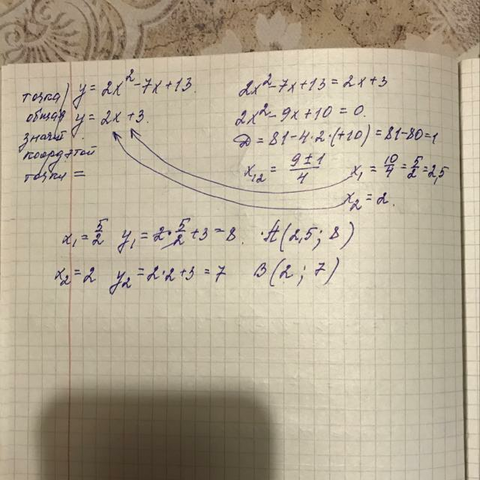 точка y = 2x² - 7x + 13.
общая y = 2x + 3.
значит
коорд этой
точки =
2x² - 7x + 13 = 2x + 3
2x² - 9x + 10 = 0.
D = 81 - 4·2·(+10) = 81 - 80 = 1
x₁₂ = (9 ± 1)/4 x₁ = 10/4 = 5/2 = 2,5
x₂ = 2.
x₁ = 5/2 y₁ = 2·5/2 + 3 = 8. A(2,5; 8)
x₂ = 2 y₂ = 2·2 + 3 = 7 B(2; 7)